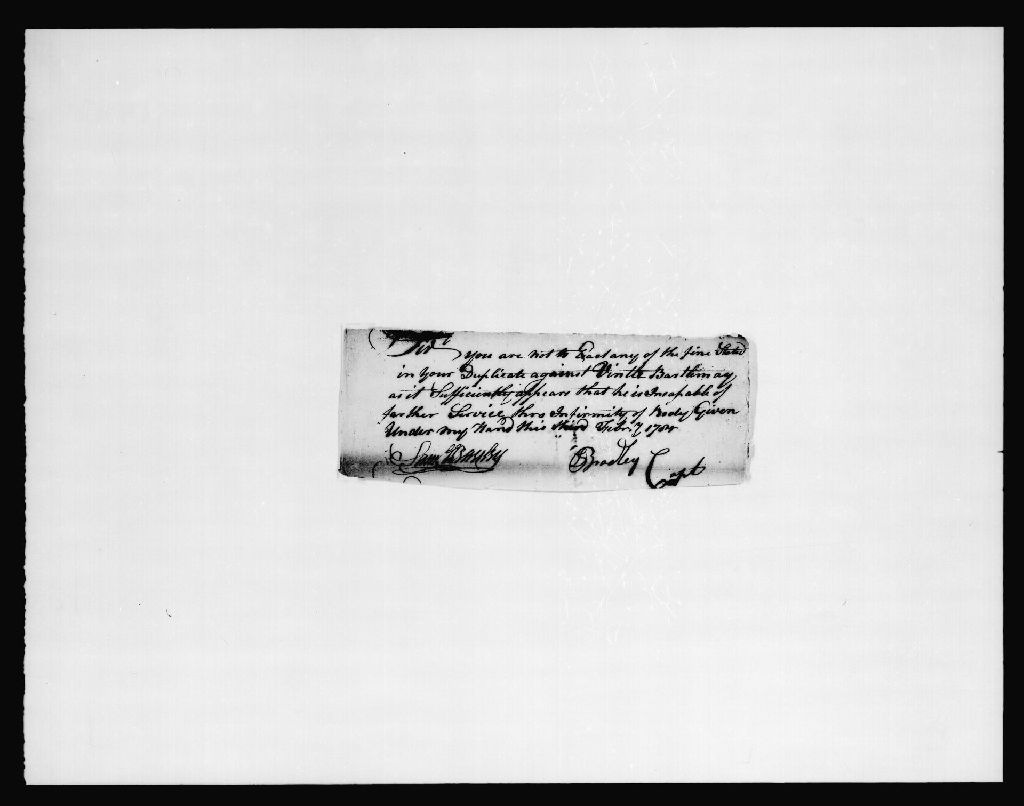 Sir you are not to Exact any of the fine Stated
in your Duplicate against Bartlemay
as it Sufficiently appears that he is Incapable of
farther Service thro Infirmity of Body Given
Under my Hand this third Febry 1784
Bradley Capt